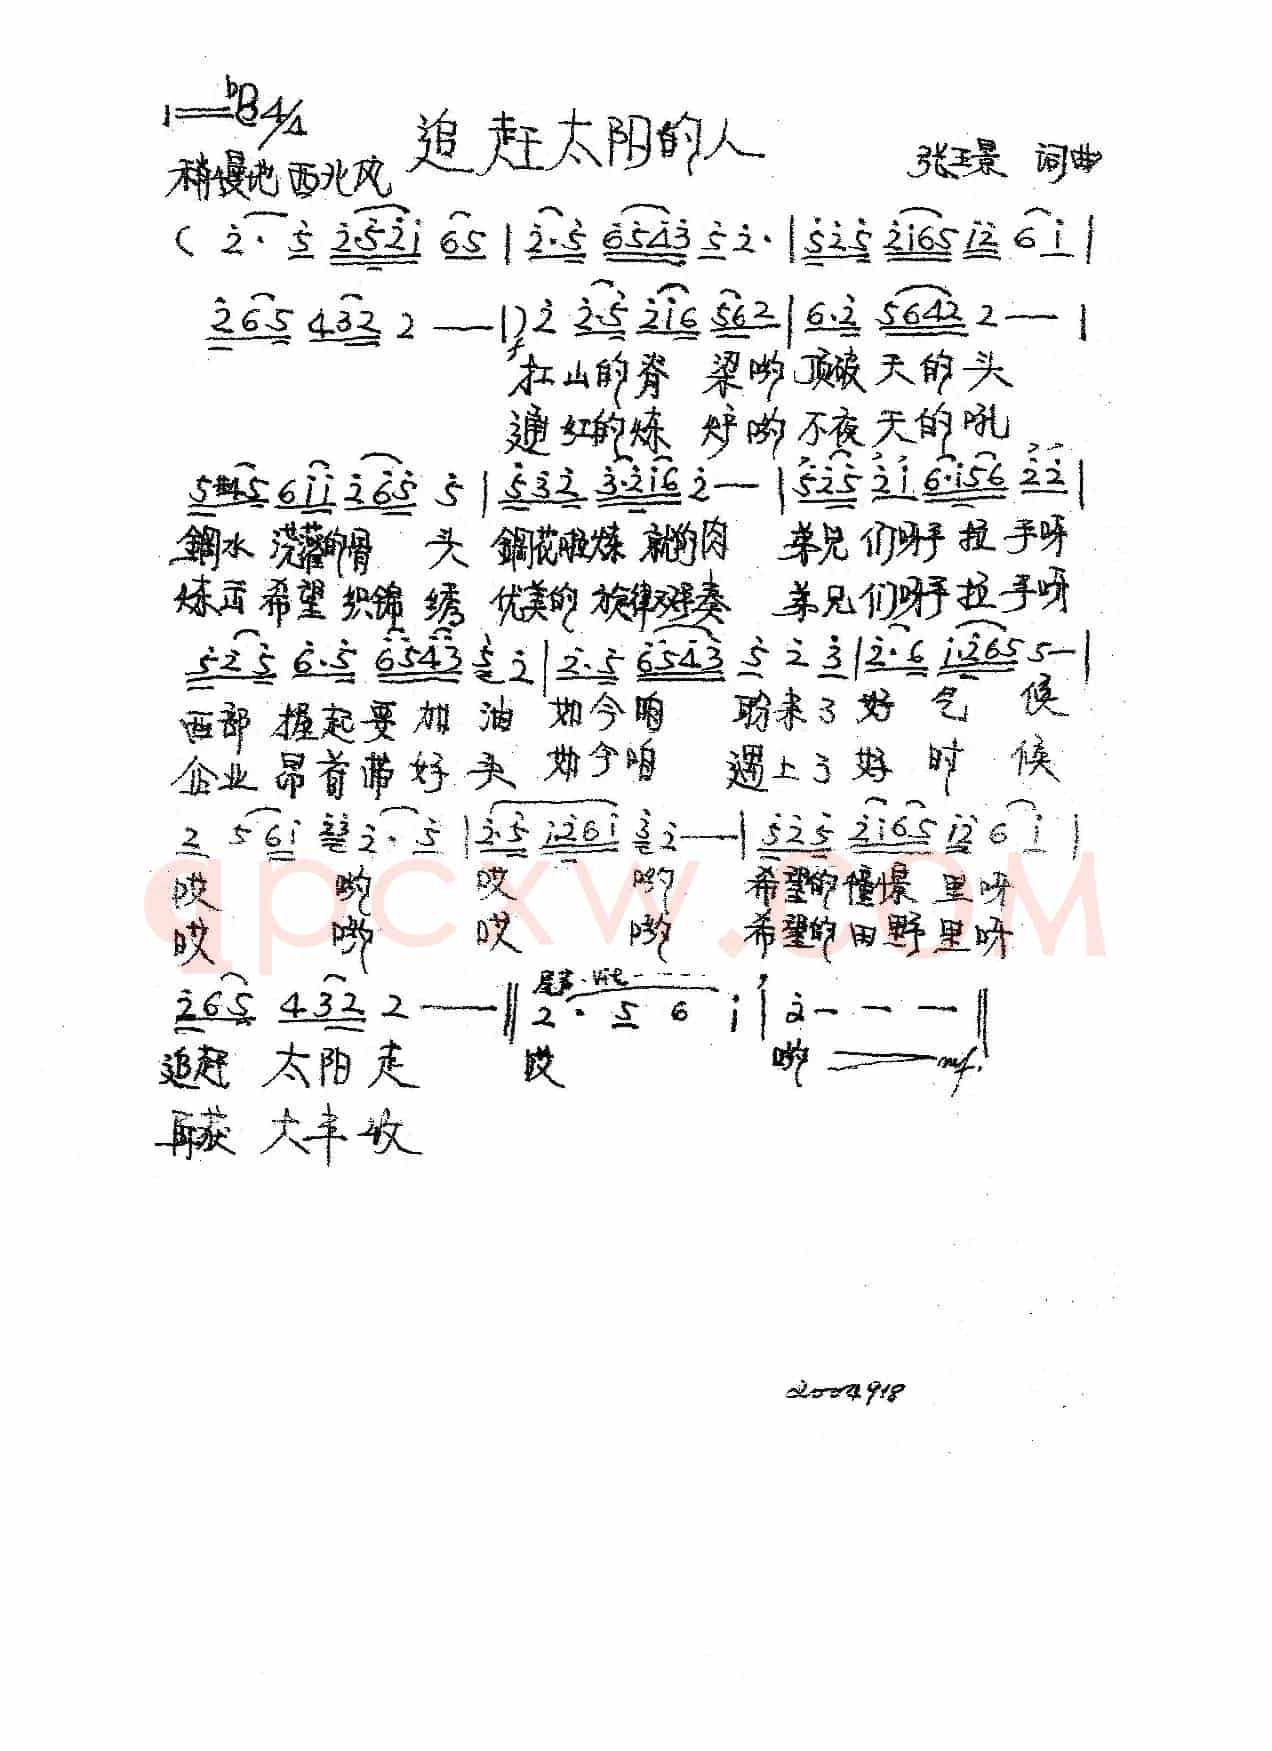 1=ᵇB 4/4
追赶太阳的人
稍慢地 西北风
张玉景 词曲
( 2̇· 5̇ 2̇5̇2̇1̇ 65 | 2̇·5̇ 6̇5̇4̇3̇ 5̇ 2̇· | 5̇2̇5̇ 2̇1̇65 1̇2̇ 6 1̇ |
2̇65 432 2 — | ) 2̇ 2̇·5̇ 2̇1̇6 562 | 6·2̇ 5642 2 — |
f
扛山的脊 梁哟 顶破 天的头
通红的炼 炉哟 不夜 天的吼
5#45 61̇1̇ 2̇65 5̇ | 5̇32̇ 3·2̇1̇6 2̇ — | 5̇2̇5̇ 2̇1̇ 6·1̇56 2̇2̇ |
鋼水 浇灌的骨 头 鋼花啦炼 就的肉 弟兄们呀手拉手呀
炼击希望 织錦 绣 优美的 旋律双手奏 弟兄们呀手拉手呀
5̇2̇5̇ 6·5̇ 6̇5̇4̇3̇ 5̇ 2̇ | 2̇·5̇ 6̇5̇4̇3̇ 5̇ 2̇ 3̇ | 2̇·6 1̇·2̇65 5 — |
西部 握起要加油 如今咱 盼来了好气候
企业昂首带好头 如今咱 遇上了好时候
2 5 61̇ 2̇3̇ 2̇· 5̇ | 2̇·5̇ 1̇·2̇61̇ 3̇ 2̇ — | 5̇2̇5̇ 2̇1̇65 1̇2̇ 6 1̇ |
哎 哟 哎 哟 希望的憧憬里呀
qpcxw.com
哎 哟 哎 哟 希望的田野里呀
2̇65 432 2 — ‖ 尾声·Vit---- 2· 5 6 1̇ | 2̇ - - - ‖
追赶 太阳走 哎 哟 mf.
再获 大丰收
2004918